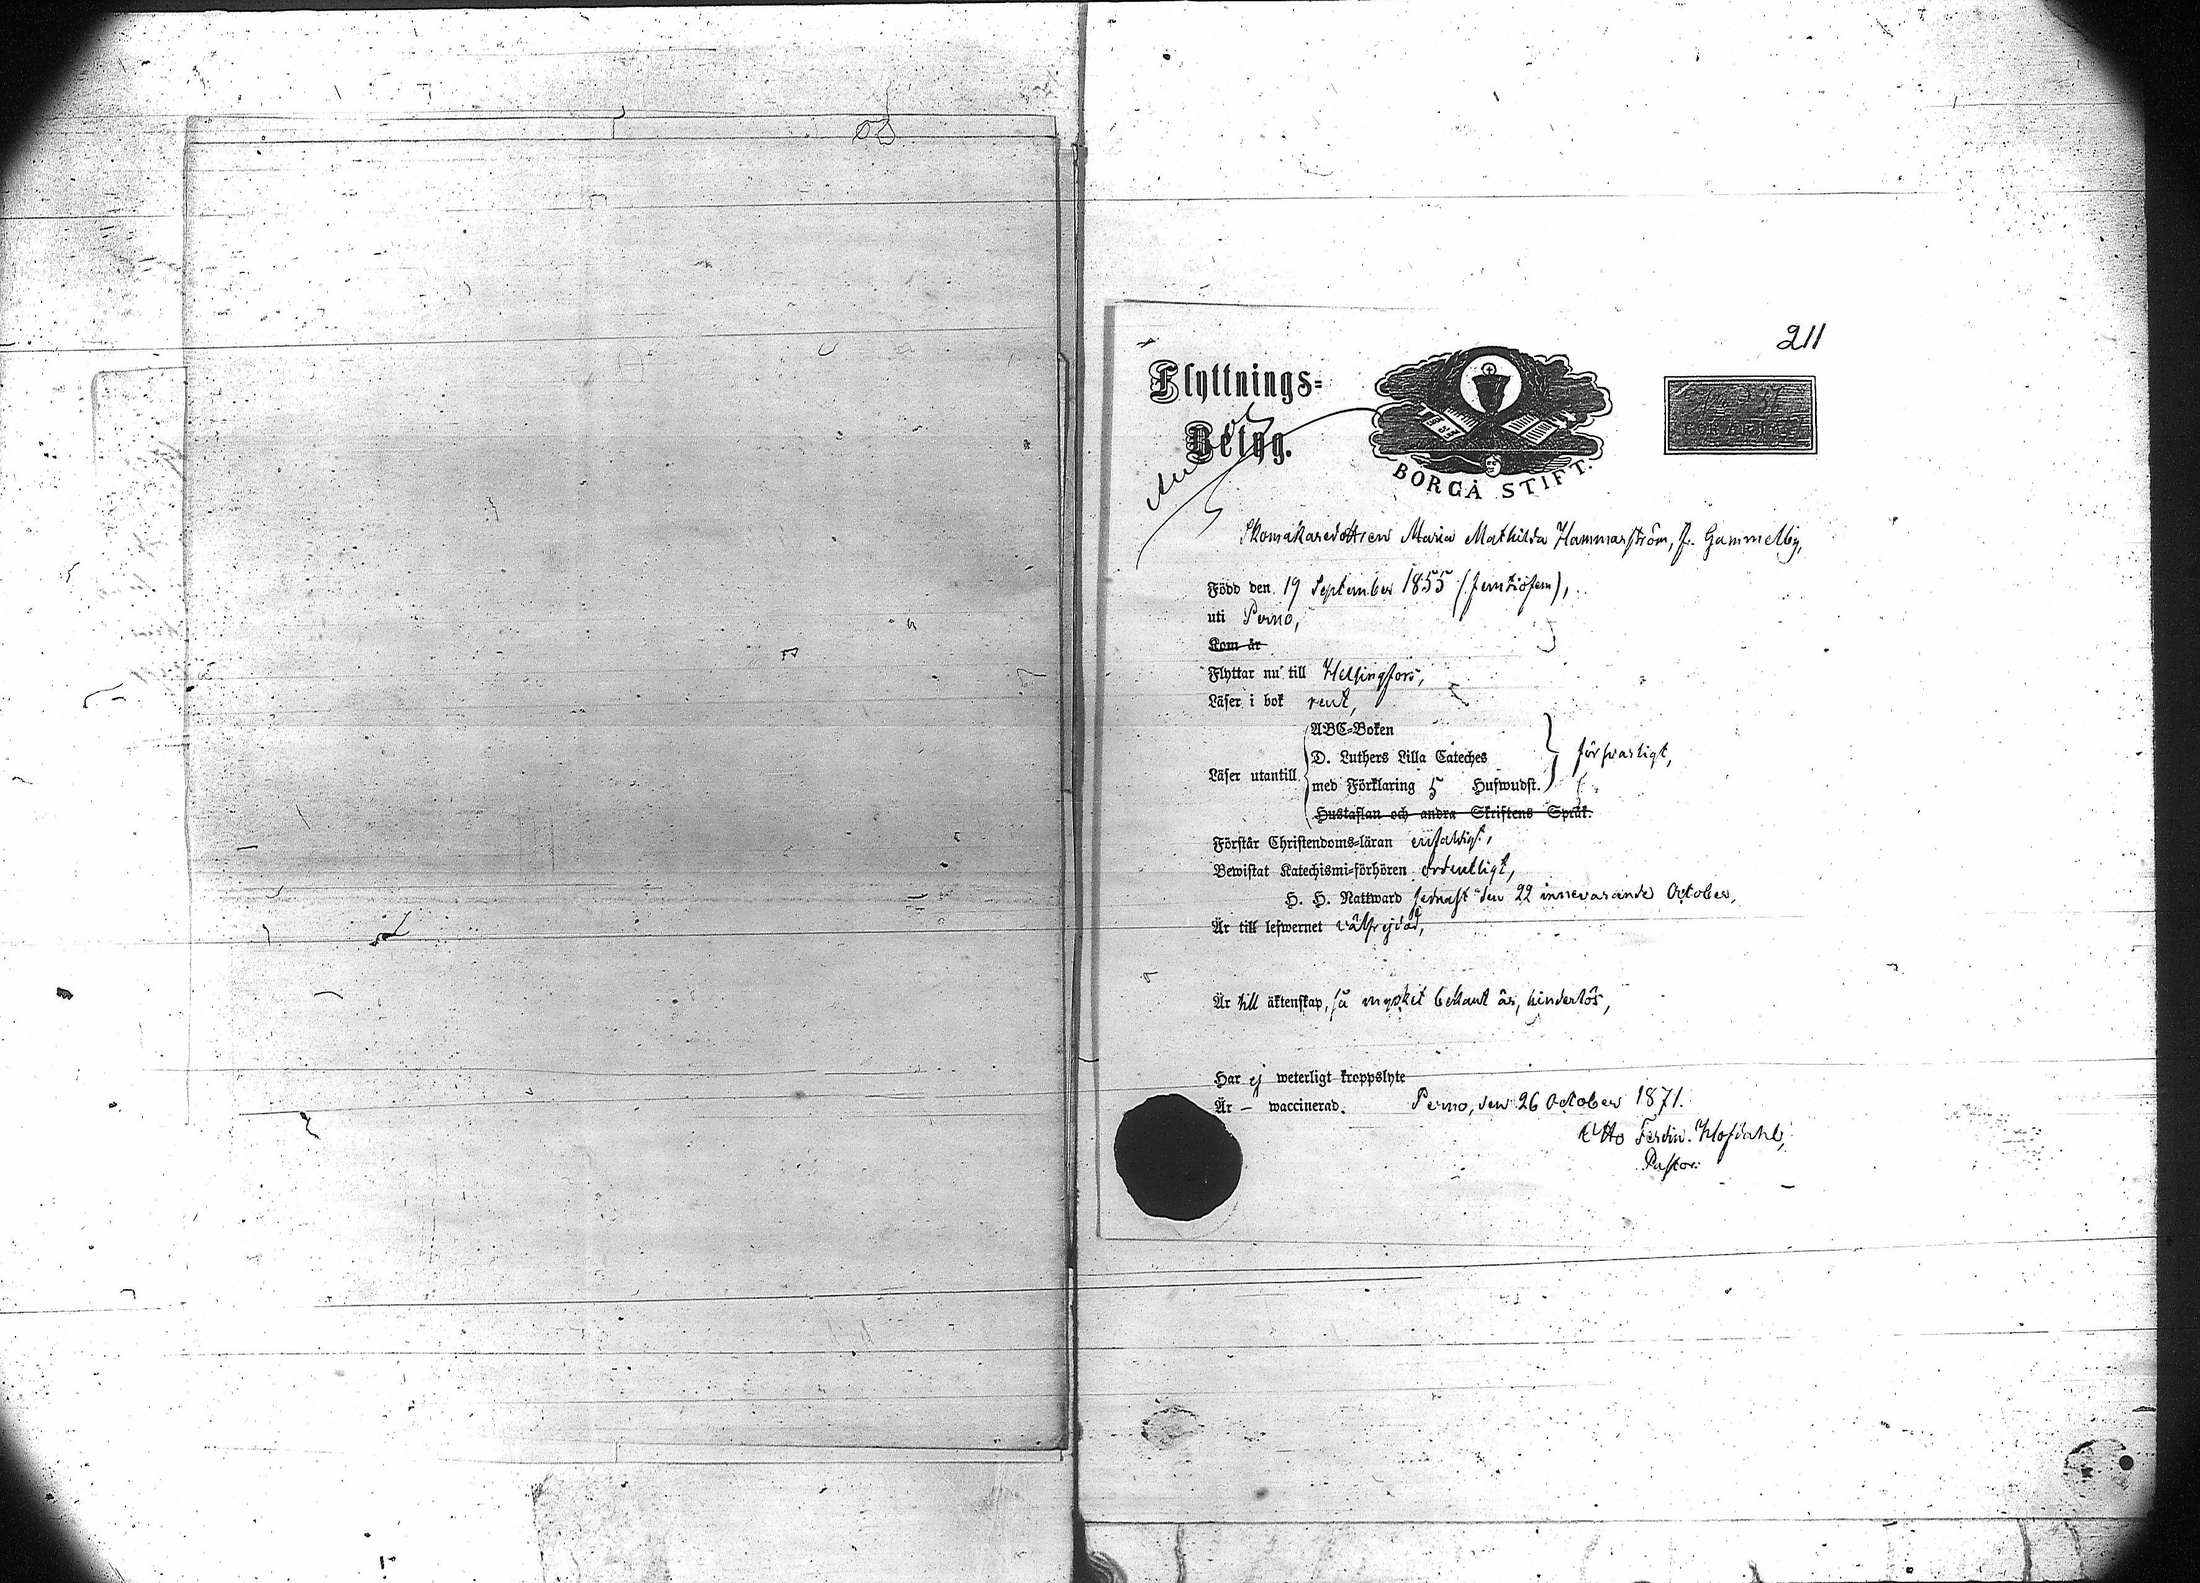 211
Flyttnings-
Betyg.
BORGÅ STIFT.
Skomakaredottren Maria Mathilda Hammarström, fr. Gammelby,
Född den 19 September 1855 (femtiofem),
uti Perno,
Kom år
Flyttar nu till Helsingfors,
Läser i bok rent,
ABC-Boken
D. Luthers Lilla Cateches
Läser utantill
med Förklaring 5 Hufwudst.
försvarligt,
Hustaflan och andra Skriftens Språk.
Förstår Christendoms-läran enfaldigt,
Bewistat Katechismi-förhören ordentligt,
H. H. Nattward sednast den 22 innevarande October,
Är till lefwernet välfrejdad,
Är till äktenskap, så mycket bekant är, hinderlös,
Har ej weterligt kroppslyte
Är – waccinerad. Perno, den 26 October 1871.
Otto Ferdin. Hofdahl,
Pastor.